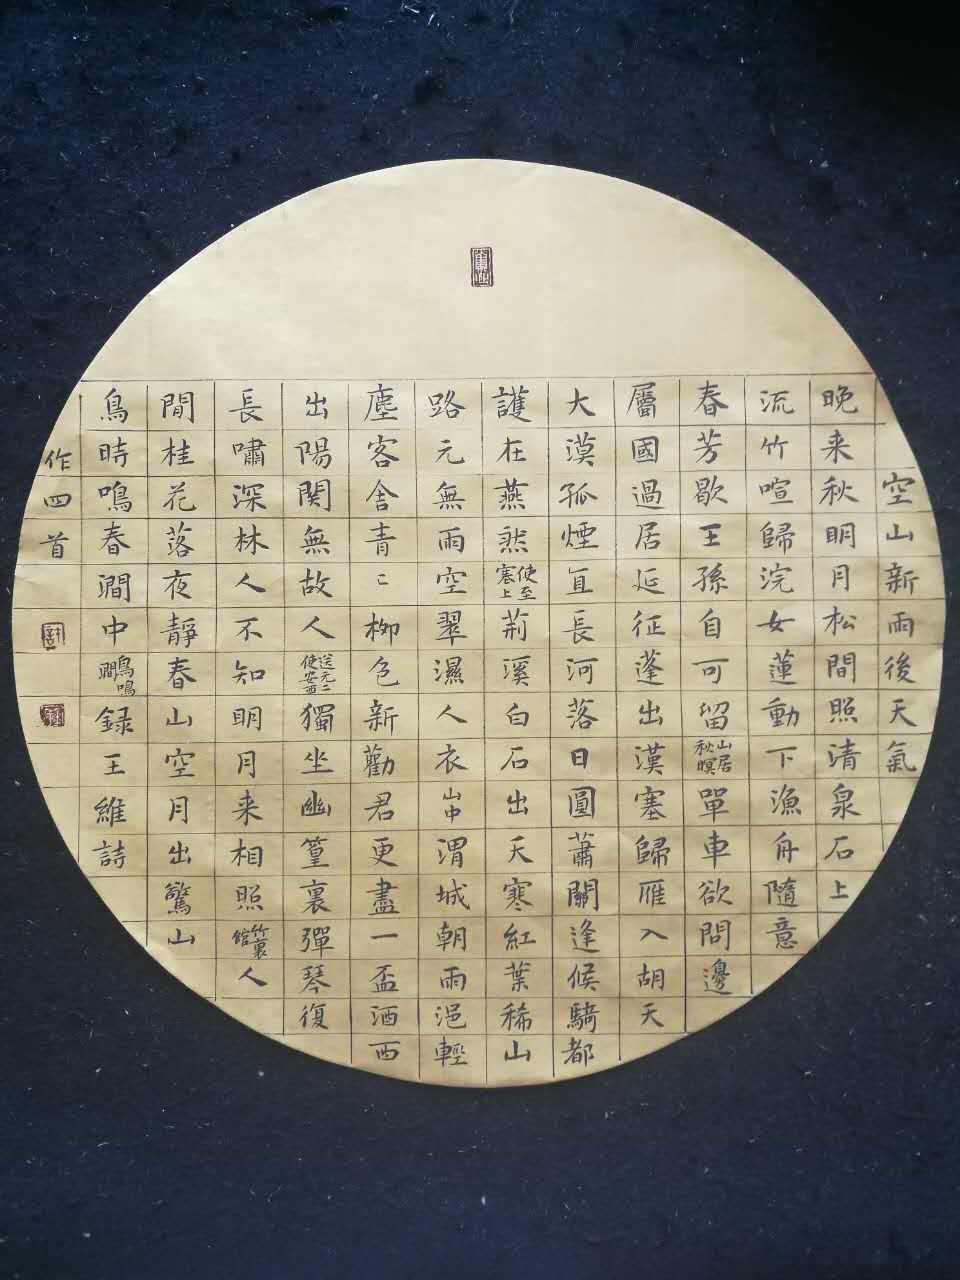 空山新雨後天氣
晚来秋明月松間照清泉石上
流竹喧歸浣女蓮動下漁舟隨意
春芳歇王孫自可留山居秋暝單車欲問邊
屬國過居延征蓬出漢塞歸雁入胡天
大漠孤煙直長河落日圓蕭關逢候騎都
護在燕然使至塞上荊溪白石出天寒紅葉稀山
路元無雨空翠濕人衣山中渭城朝雨浥輕
塵客舍青〻柳色新勸君更盡一盃酒西
出陽関無故人送元二使安西獨坐幽篁裏彈琴復
長嘯深林人不知明月来相照竹裏館人
閒桂花落夜靜春山空月出驚山
鳥時鳴春澗中鳥鳴澗録王維詩
作四首